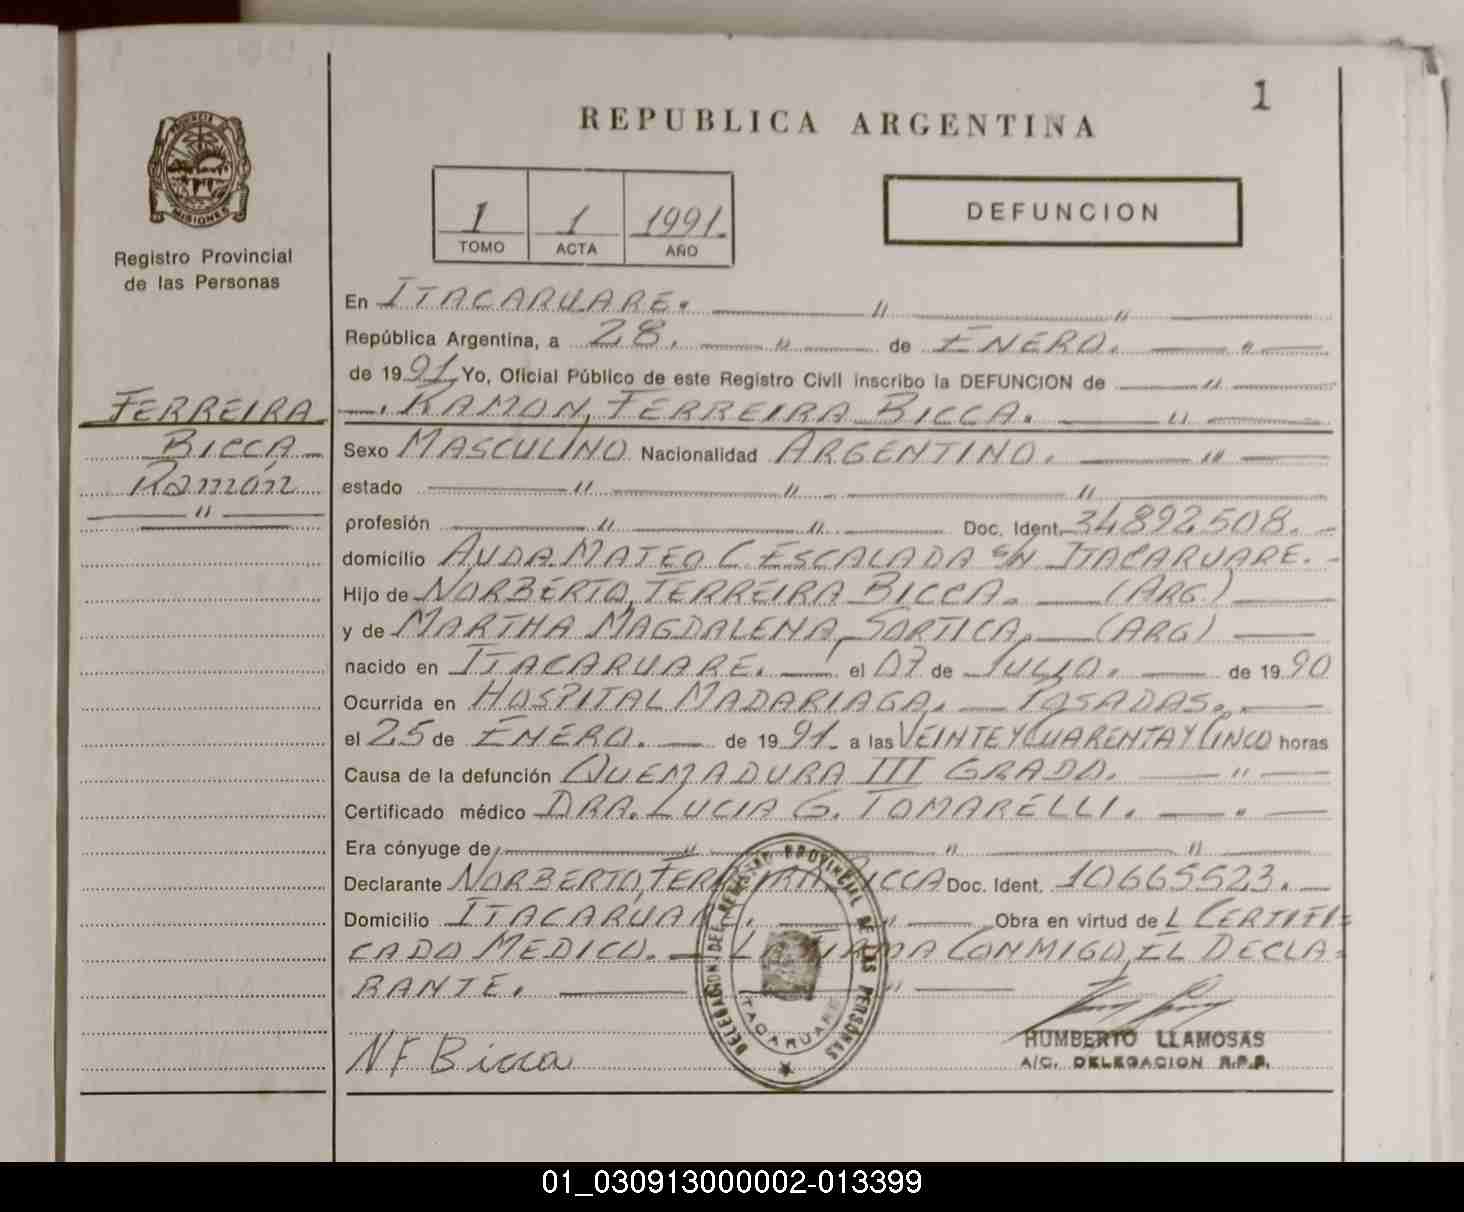 1
REPUBLICA ARGENTINA
PROVINCIA
MISIONES
Registro Provincial
de las Personas
1 1 1991.
TOMO ACTA AÑO
DEFUNCION
En ITACARUARE. — " — " —
República Argentina, a 28. — " — de ENERO. — " —
de 1991. Yo, Oficial Público de este Registro Civil inscribo la DEFUNCION de — " —
—. RAMON, FERREIRA BICCA. — " —
FERREIRA
BICCA —
Ramón
— " —
Sexo MASCULINO Nacionalidad ARGENTINO. — " —
estado — " — " — " —
profesión — " — " — Doc. Ident. 34892508. —
domicilio AVDA. MATEO C. ESCALADA S/N ITACARUARE. -
Hijo de NORBERTO, FERREIRA BICCA. — (ARG.) —
y de MARTHA MAGDALENA, SORTICA. — (ARG) —
nacido en ITACARUARE. — el 07 de JULIO. — de 1990
Ocurrida en HOSPITAL MADARIAGA. — POSADAS. —
el 25 de ENERO. — de 1991. a las VEINTE Y CUARENTA Y CINCO horas
Causa de la defunción QUEMADURA III GRADO. — " —
Certificado médico DRA. LUCIA G. TOMARELLI. — " —
Era cónyuge de — " — " — " —
Declarante NORBERTO, FERREIRA BICCA Doc. Ident. 10665523. —
Domicilio ITACARUARE. — " — Obra en virtud de L CERTIFI-
CADO MEDICO. — LO FIRMA CONMIGO, EL DECLA-
RANTE. — " —
N F Bicca
DELEGACION DEL REGISTRO PROVINCIAL DE LAS PERSONAS
ITACARUARE
HUMBERTO LLAMOSAS
A/C. DELEGACION R.P.P.
01_030913000002-013399